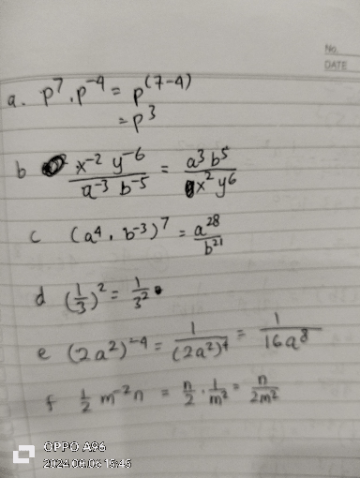 No.
DATE
a. p⁷ . p⁻⁴ = p⁽⁷⁻⁴⁾
= p³
b x⁻² y⁻⁶ / a⁻³ b⁻⁵ = a³ b⁵ / x² y⁶
c (a⁴ . b⁻³)⁷ = a²⁸ / b²¹
d (1/3)² = 1/3²
e (2a²)⁻⁴ = 1/(2a²)⁴ = 1/16a⁸
f 1/2 m⁻²n = n/2 . 1/m² = n/2m²
OPPO A96
2024.06.03 15:45